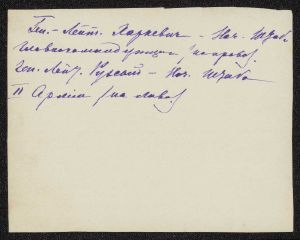 Ген.-Лейт. Харкевич - Нач. Штаба
Главнокомандующаго (направо)
Ген. Лейт. Рузский - Нач. Штаба
II Армии (на лево)